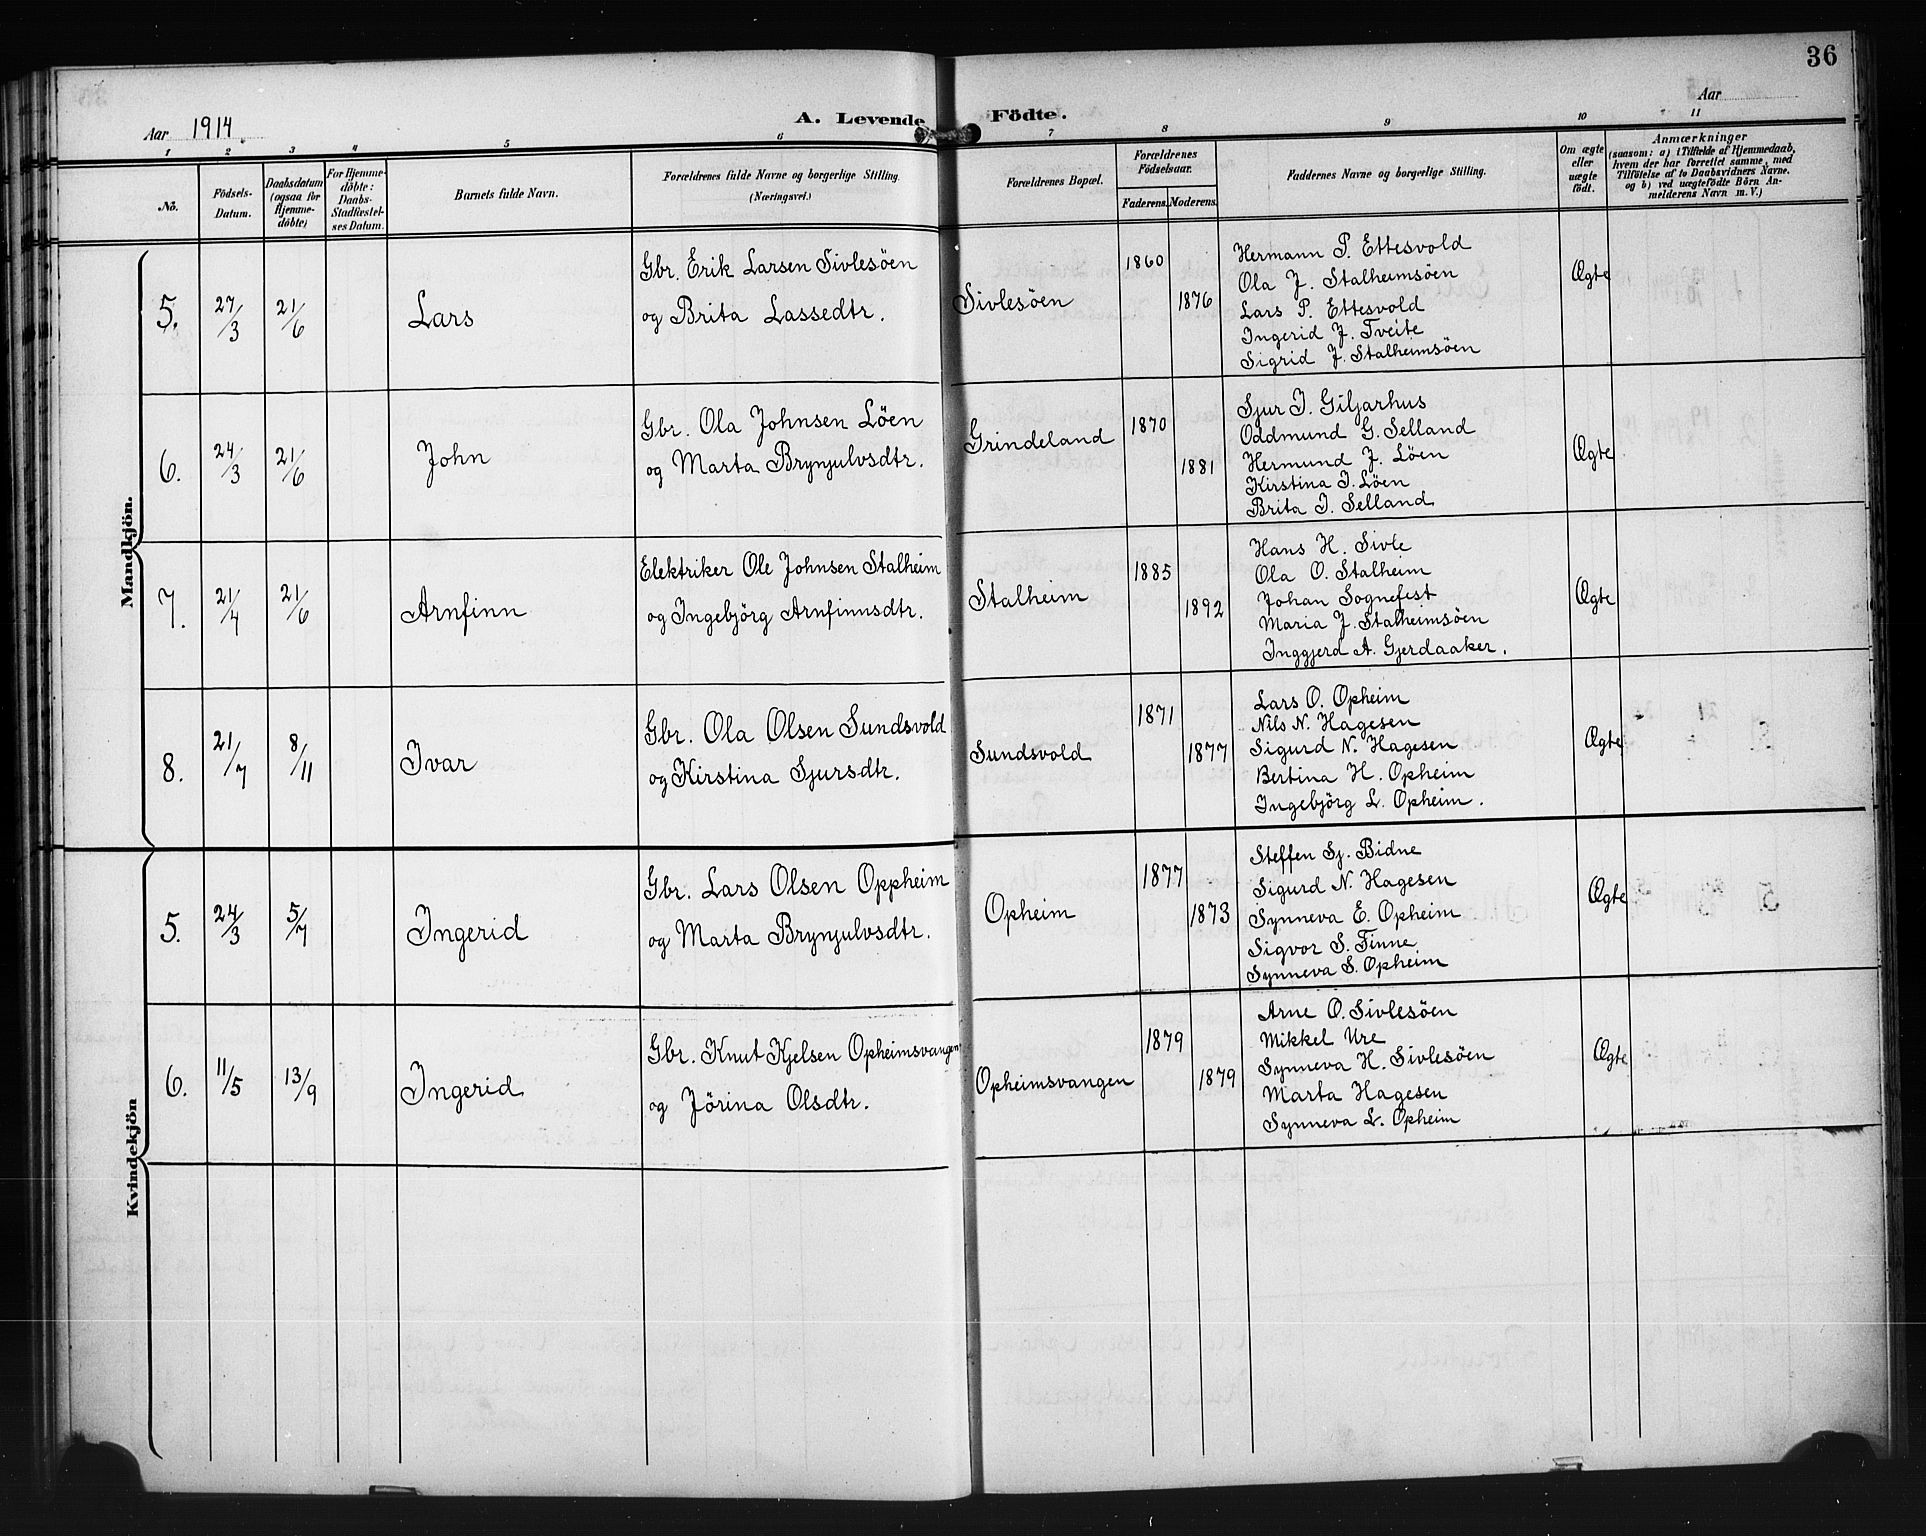 36
Aar 1914
A. Levende Födte.
Aar
1 2 3 4 5 6 7 8 9 10 11
No.
Födsels-
Datum.
Daabsdatum
(ogsaa for
Hjemme-
döbte)
For Hjemme-
döbte:
Daabs-
Stadfæstel-
ses Datum.
Barnets fulde Navn.
Forældrenes fulde Navne og borgerlige Stilling.
(Næringsvei.)
Forældrenes Bopæl.
Forældrenes
Födselsaar.
Faderens. Moderens.
Faddernes Navne og borgerlige Stilling.
Om ægte
eller
uægte
födt.
Anmærkninger
(saasom: a) i Tilfælde af Hjemmedaab,
hvem der har forrettet samme, med
Tilföielse af to Daabsvidners Navne.
og b) ved uægtefödte Börn An-
melderens Navn m. V.)
Mandkjön.
5. 27/3 21/6 Lars
Gbr. Erik Larsen Sivlesöen
og Brita Lassedtr.
Sivlesöen 1860 1876
Hermann P. Ettesvold
Ola J. Stalheimsöen
Lars P. Ettesvold
Ingerid J. Tveite
Sigrid J. Stalheimsöen
Ægte
6. 24/3 21/6 John
Gbr. Ola Johnsen Löen
og Marta Brynjulvsdtr.
Grindeland 1870 1881
Sjur I. Giljarhus
Oddmund G. Selland
Hermund J. Löen
Kirstina I. Löen
Brita I. Selland
Ægte
7. 21/4 21/6 Arnfinn
Elektriker Ole Johnsen Stalheim
og Ingebjörg Arnfinnsdtr.
Stalheim 1885 1892
Hans H. Sivle
Ola O. Stalheim
Johan Sognefest
Maria J. Stalheimsöen
Inggjerd A. Gjerdaaker.
Ægte
8. 21/7 8/11 Ivar
Gbr. Ola Olsen Sundsvold
og Kirstina Sjursdtr.
Sundsvold 1871 1877
Lars O. Opheim
Nils N. Hagesen
Sigurd N. Hagesen
Bertina H. Opheim
Ingebjörg L. Opheim.
Ægte
Kvindekjön
5. 24/3 5/7 Ingerid
Gbr. Lars Olsen Oppheim
og Marta Brynjulvsdtr.
Opheim 1877 1873
Steffen Sj. Bidne
Sigurd N. Hagesen
Synneva E. Opheim
Sigvor S. Finne
Synneva S. Opheim
Ægte
6. 11/5 13/9 Ingerid
Gbr. Knut Kjelsen Opheimsvangen
og Jörina Olsdtr.
Opheimsvangen 1879 1879
Arne O. Sivlesöen
Mikkel Ure
Synneva H. Sivlesöen
Marta Hagesen
Synneva L. Opheim
Ægte